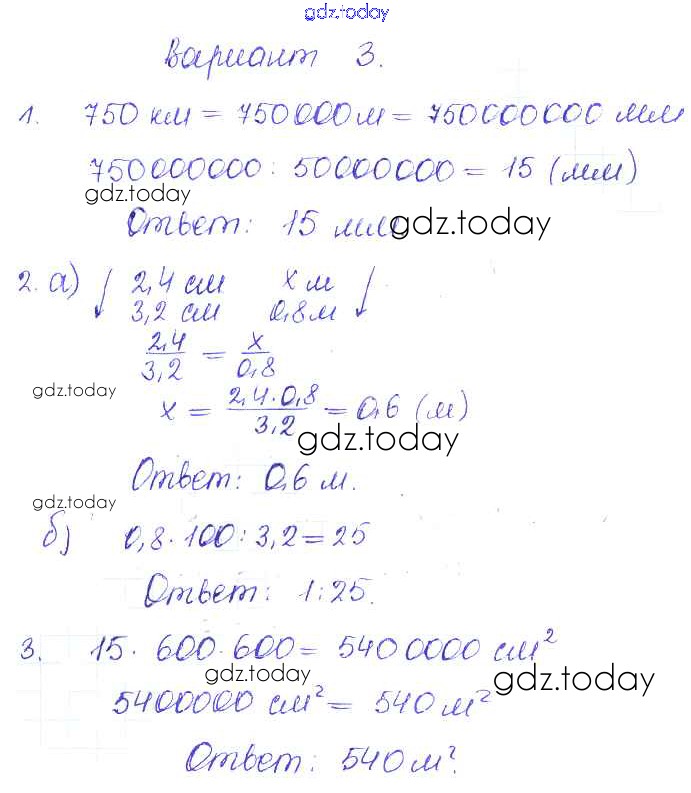 gdz.today
Вариант 3.
1. 750 км = 750000 м = 750000000 мм
750000000 : 50000000 = 15 (мм)
gdz.today
Ответ: 15 мм.
gdz.today
2. а) ↓ 2,4 см x м ↓
3,2 см 0,8 м
2,4/3,2 = x/0,8
gdz.today
x = 2,4·0,8/3,2 = 0,6 (м)
gdz.today
Ответ: 0,6 м.
gdz.today
б) 0,8·100 : 3,2 = 25
Ответ: 1:25.
3. 15· 600·600 = 5400000 см²
gdz.today
gdz.today
5400000 см² = 540 м²
Ответ: 540 м².